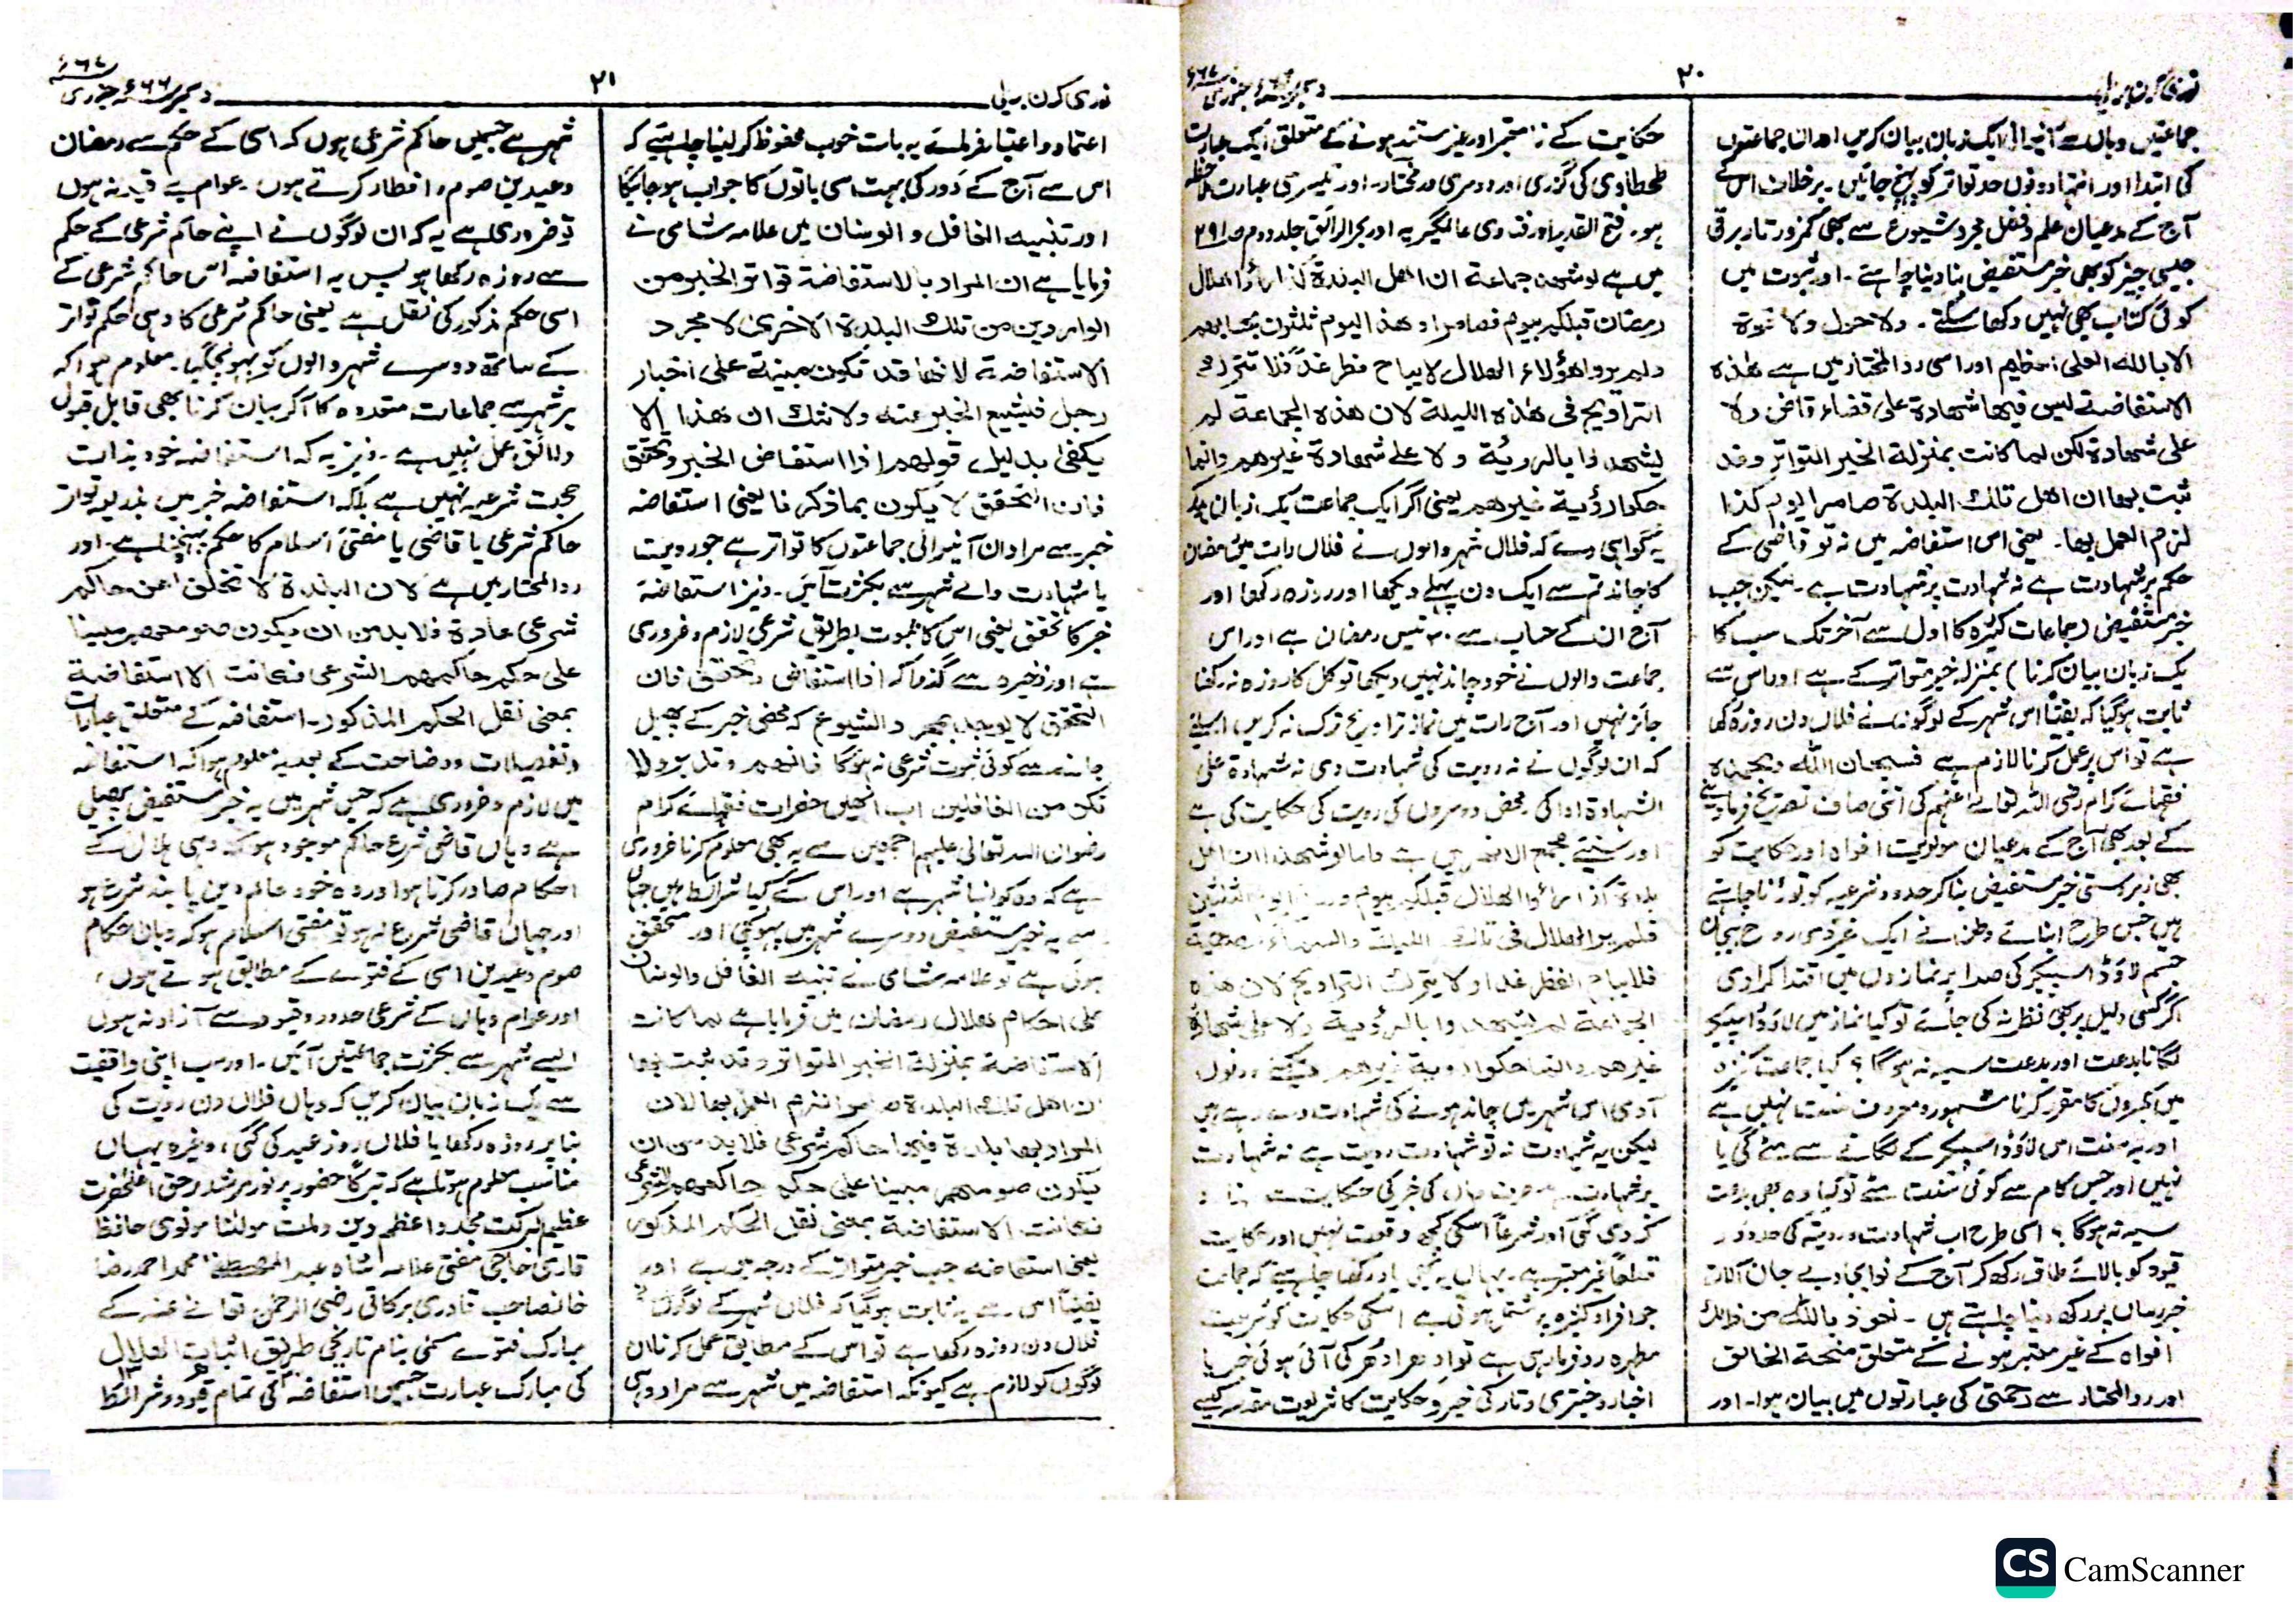 ۲۰
جماعتیں وہاں سے آئیں اور ایک زبان بیان کریں اور ان جماعتوں
کی ابتدا اور انتہا دونوں حد تواتر کو پہنچ جائیں۔ برخلاف اس کے
آج کے مدعیان علم و فضل مجرد شیوع سے بھی کمزور تار برقی
جیسی چیز کو بھی خبر مستفیض بنا دینا چاہتے۔ اور ثبوت میں
کوئی کتاب بھی نہیں دکھا سکتے۔ ولا حول ولا قوة
الا بالله العلی العظیم اور اسی رد المختار میں ہے هذه
الاستفاضة لیس فیها شهادة علی قضاء قاض ولا
علی شهادة لکن لما کانت بمنزلة الخبر المتواتر وقد
ثبت بها ان اهل تلك البلدة صاموا یوم کذا
لزم العمل بها۔ یعنی اس استفاضہ میں نہ تو قاضی کے
حکم پر شہادت ہے نہ شہادت پر شہادت ہے۔ لیکن جب
خبر مستفیض (جماعات کثیرہ کا اول سے آخر تک سب کا
یک زبان بیان کرنا) بمنزلہ خبر متواتر کے ہے اور اس سے
ثابت ہوگیا کہ یقیناً اس شہر کے لوگوں نے فلاں دن روزہ رکھا
ہے تو اس پر عمل کرنا لازم ہے فسبحان الله وبحمده
فقہائے کرام رضی اللہ تعالے عنہم کی اتنی صاف تصریح فرما دینے
کے بعد بھی آج کے مدعیان مولویت افواہ اور حکایت کو
بھی زبردستی خبر مستفیض بنا کر حدود شرعیہ کو توڑنا چاہتے
ہیں جس طرح ابنائے وطن نے ایک غیر ذی روح بیجان
جسم لاؤڈ اسپیکر کی صدا پر نمازوں میں اقتدا کرا دی
اگر کسی دلیل پر بھی نظر نہ کی جائے تو کیا نماز میں لاؤڈ اسپیکر
لگانا بدعت اور بدعت سیئہ نہ ہوگا؟ کیا جماعت کثیرہ
میں مکبروں کا مقرر کرنا مشہور و معروف سنت نہیں ہے
اور یہ سنت اس لاؤڈ اسپیکر کے لگانے سے مٹے گی یا
نہیں اور جس کام سے کوئی سنت مٹے تو کیا وہ بھی بدعت
سیئہ نہ ہوگا؟ اسی طرح اب شہادت و رویت کی حدود و
قیود کو بالائے طاق رکھ کر آج کے نو ایجاد بے جان آلات
خبر رساں پر رکھ دینا چاہتے ہیں۔ نعوذ بالله من ذالك
افواہ کے غیر معتبر ہونے کے متعلق منحة الخالق
اور رد المختار سے رحمتی کی عبارتوں میں بیان ہوا۔ اور
حکایت کے نا معتبر اور غیر مستند ہونے کے متعلق ایک عبارت
طحطاوی کی گزری اور دوسری در مختار۔ اور تیسری عبارت ملاحظہ
ہو۔ فتح القدیر اور فتاوی عالمگیریہ اور بحر الرائق جلد دوم ص ۲۹۱
میں ہے لو شهد جماعة ان اهل البلدة کذا راؤا هلال
رمضان قبلکم بیوم فصاموا وهذا الیوم ثلثون بحسابهم
ولم یروا هؤلاء الهلال لا یباح فطر غد فلا تترك
التراویح فی هذه اللیلة لان هذه الجماعة لم
یشهدوا بالرویة ولا علی شهادة غیرهم وانما
حکوا رؤیة غیرهم یعنی اگر ایک جماعت یک زبان ہوکر
یہ گواہی دے کہ فلاں شہر والوں نے فلاں رات میں رمضان
کا چاند تم سے ایک دن پہلے دیکھا اور روزہ رکھا اور
آج ان کے حساب سے ۳۰ تیس رمضان ہے اور اس
جماعت والوں نے خود چاند نہیں دیکھا تو کل کا روزہ نہ رکھنا
جائز نہیں اور آج رات میں نماز تراویح ترک نہ کریں، اسلئے
کہ ان لوگوں نے نہ رویت کی شہادت دی نہ شہادة علی
الشہادة ادا کی۔ محض دوسروں کی رویت کی حکایت کی ہے
اور سنیئے مجمع الانہر میں ہے واما لو شهدا ان اهل
بلدة کذا راؤا الهلال قبلکم بیوم
فلم یر الهلال فی تلك اللیلة والسماء مصحیة
فلا یباح الفطر غدا ولا یترك التراویح لان هذه
الجماعة لم یشهدوا بالرؤیة ولا علی شهادة
غیرهم وانما حکوا رویة غیرهم دونوں
آدمی اس شہر میں چاند ہونے کی شہادت دے رہے ہیں
لیکن یہ شہادت نہ تو شہادت رویت ہے نہ شہادت
پر شہادت کی خبر کی حکایت ہے
کر دی گئی اور شرعاً اسکی کچھ وقعت نہیں اور حکایت
قطعاً غیر معتبر ہے۔ یہاں یہ بھی یاد رکھنا چاہیے کہ جماعت
جو افراد کثیرہ پر مشتمل ہوتی ہے اسکی حکایت کو شریعت
مطہرہ رد فرما رہی ہے تو ادھر ادھر کی آئی ہوئی خبر یا
اخبار و جنتری و تار کی خبر و حکایت کا شریعت مقدسہ کیسے
نوری کرن بریلی
۲۱
دسمبر ۶۶ء جنوری ۶۷ء
اعتماد و اعتبار فرمائے یہ بات خوب محفوظ کر لینا چاہیئے کہ
اس سے آج کے دور کی بہت سی باتوں کا جواب ہو جائیگا
اور تنبیہ الغافل و الوسنان میں علامہ شامی نے
فرمایا ہے ان المراد بالاستفاضة تواتر الخبر من
الواردین من تلك البلدة الاخری لا مجرد
الاستفاضة لانها قد تکون مبنیة علی اخبار
رجل فیشیع الخبر عنه ولا شك ان هذا لا
یکفی بدلیل قولهم اذا استفاض الخبر وتحقق
فان التحقق لا یکون بما ذکرنا یعنی استفاضہ
خبر سے مراد ان آنیوالی جماعتوں کا تواتر ہے جو رویت
یا شہادت والے شہر سے بکثرت آئیں۔ ونیز استفاضہ
خبر کا تحقق یعنی اس کا ثبوت بطریق شرعی لازم و ضروری
ہے اور ذخیرہ سے گذرا کہ اذا استفاض وتحقق فان
التحقق لا یوجد بمجرد الشیوع کہ محض خبر کے پھیل
جانے سے کوئی ثبوت شرعی نہ ہوگا فافهم وتدبر ولا
تکن من الغافلین اب انہیں حضرات فقہائے کرام
رضوان اللہ تعالی علیہم اجمعین سے یہ بھی معلوم کرنا ضروری
ہے کہ وہ کونسا شہر ہے اور اس کے کیا شرائط ہیں جہاں
سے یہ خبر مستفیض دوسرے شہر میں پہونچی اور متحقق
ہوئی ہے تو علامہ شامی نے تنبیہ الغافل والوسنان
علی احکام هلال رمضان، میں فرمایا ہے لما کانت
الاستفاضة بمنزلة الخبر المتواتر وقد ثبت بها
ان اهل تلك البلدة صاموا لزم العمل بها لان
المراد بها بلدة فیها حاکم شرعی فلا بد من ان
یکون صومهم مبنیا علی حکم حاکمهم الشرعی
فکانت الاستفاضة بمعنی نقل الحکم المذکور
یعنی استفاضہ جب خبر متواتر کے درجہ میں ہے اور
یقیناً اس سے یہ ثابت ہوگیا کہ فلاں شہر کے لوگوں نے
فلاں دن روزہ رکھا ہے تو اس کے مطابق عمل کرنا ان
لوگوں کو لازم ہے کیونکہ استفاضہ میں شہر سے مراد وہی
شہر ہے جسمیں حاکم شرعی ہوں کہ اسی کے حکم سے رمضان
وعیدین صوم و افطار کرتے ہوں۔ عوام بے قید نہ ہوں
تو ضروری ہے یہ کہ ان لوگوں نے اپنے حاکم شرعی کے حکم
سے روزہ رکھا ہو پس یہ استفاضہ اس حاکم شرعی کے
اسی حکم مذکور کی نقل ہے یعنی حاکم شرعی کا وہی حکم تواتر
کے ساتھ دوسرے شہر والوں کو پہونچ گیا۔ معلوم ہوا کہ
ہر شہر سے جماعات متعددہ کا آکر بیان کرنا بھی قابل قبول
ولائق عمل نہیں ہے۔ ونیز یہ کہ استفاضہ خود بذات
حجت شرعیہ نہیں ہے بلکہ استفاضہ خبر میں بذریعہ تواتر
حاکم شرعی یا قاضی یا مفتی اسلام کا حکم پہنچتا ہے۔ اور
رد المختار میں ہے لان البلدة لا تخلو عن حاکم
شرعی عادة فلا بد من ان یکون صومهم مبنیا
علی حکم حاکمهم الشرعی فکانت الاستفاضة
بمعنی نقل الحکم المذکور۔ استفاضہ کے متعلق عبارات
وتفصیلات ووضاحت کے بعد یہ معلوم ہوا کہ استفاضہ
میں لازم و ضروری ہے کہ جس شہر میں یہ خبر مستفیض پھیلی
ہے وہاں قاضی شرع حاکم موجود ہو کہ وہی ہلال کے
احکام صادر کرتا ہو اور وہ خود عالم دین پابند شرع ہو
اور جہاں قاضی شرع نہ ہو تو مفتی اسلام ہو کہ وہاں احکام
صوم وعیدین اسی کے فتوے کے مطابق ہوتے ہوں،
اور عوام وہاں کے شرعی حدود وقیود سے آزاد نہ ہوں
ایسے شہر سے بکثرت جماعتیں آئیں۔ اور سب اپنی واقفیت
سے یک زبان بیان کریں کہ وہاں فلاں دن رویت کی
بنا پر روزہ رکھا یا فلاں روز عید کی گئی، وغیرہ یہاں
مناسب معلوم ہوتا ہے کہ تبرکا حضور پر نور مرشد برحق اعلحضرت
عظیم البرکت مجدد اعظم دین وملت مولٰنا مولوی حافظ
قاری حاجی مفتی علامہ شاہ عبد المصطفٰے محمد احمد رضا
خانصاحب قادری برکاتی رضی الرحمٰن تعالے عنہ کے
مبارک فتوے مسمی بنام تاریخی طریق اثبات الهلال
کی مبارک عبارت جسمیں استفاضہ کی تمام قیود و شرائط
CS CamScanner